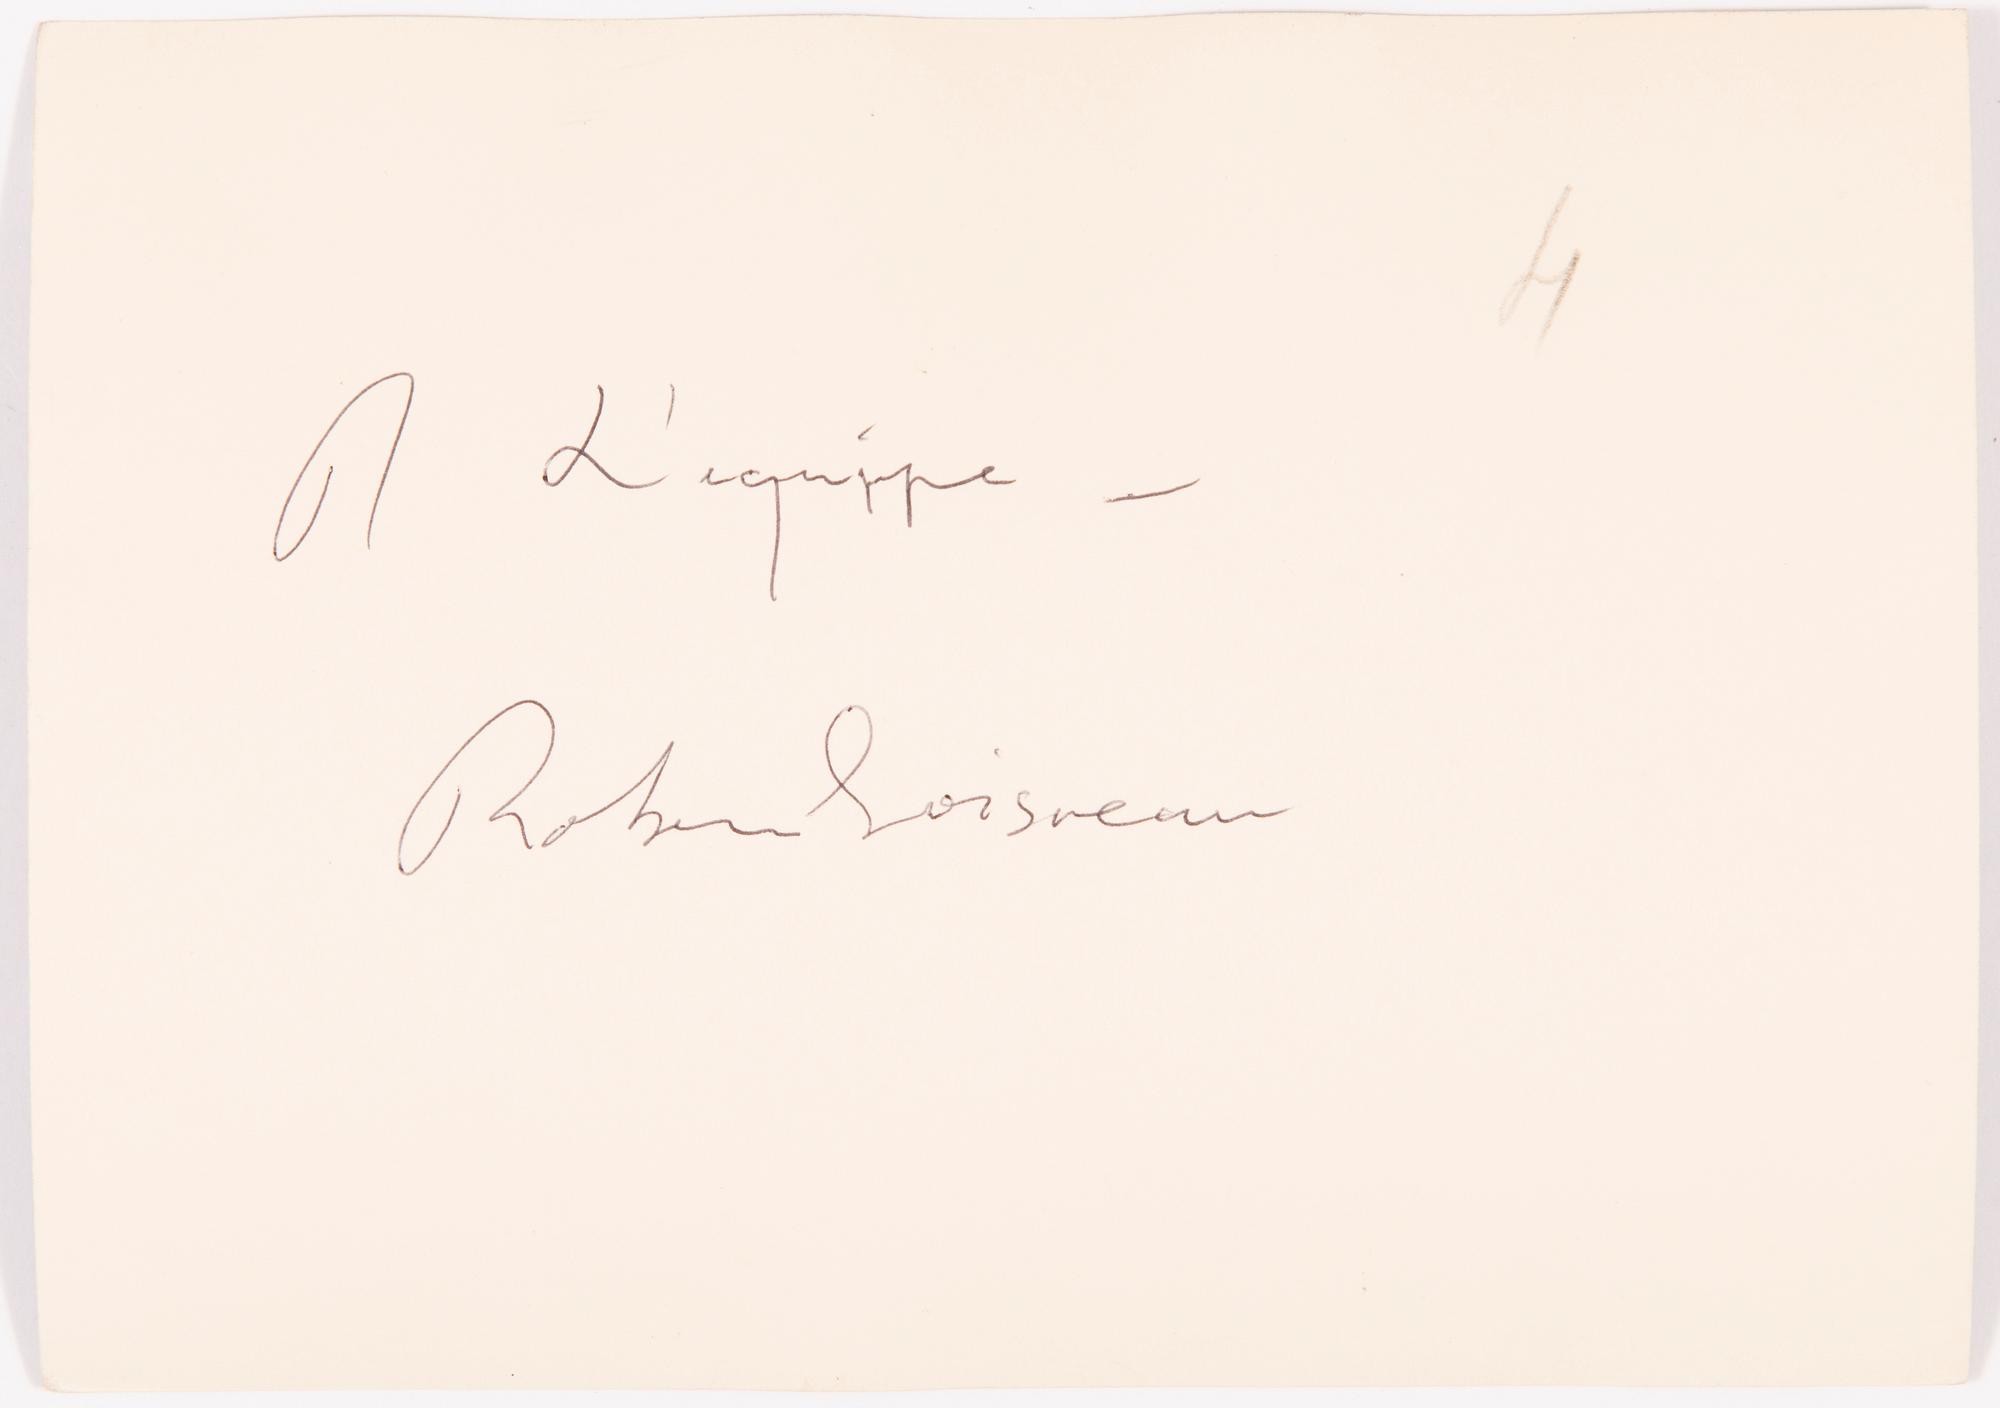 4
A L'equippe –
Robert Doisneau